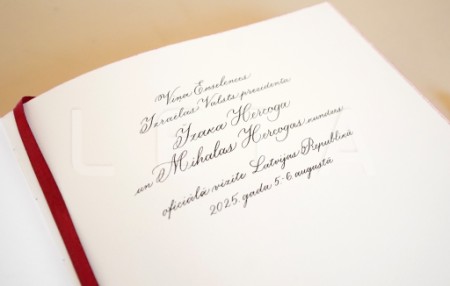 Viņa Ekselences
Izraēlas Valsts prezidenta
Īzaka Hercoga
un Mihalas Hercogas kundzes
oficiālā vizīte Latvijas Republikā
2025. gada 5.-6. augustā
LETA